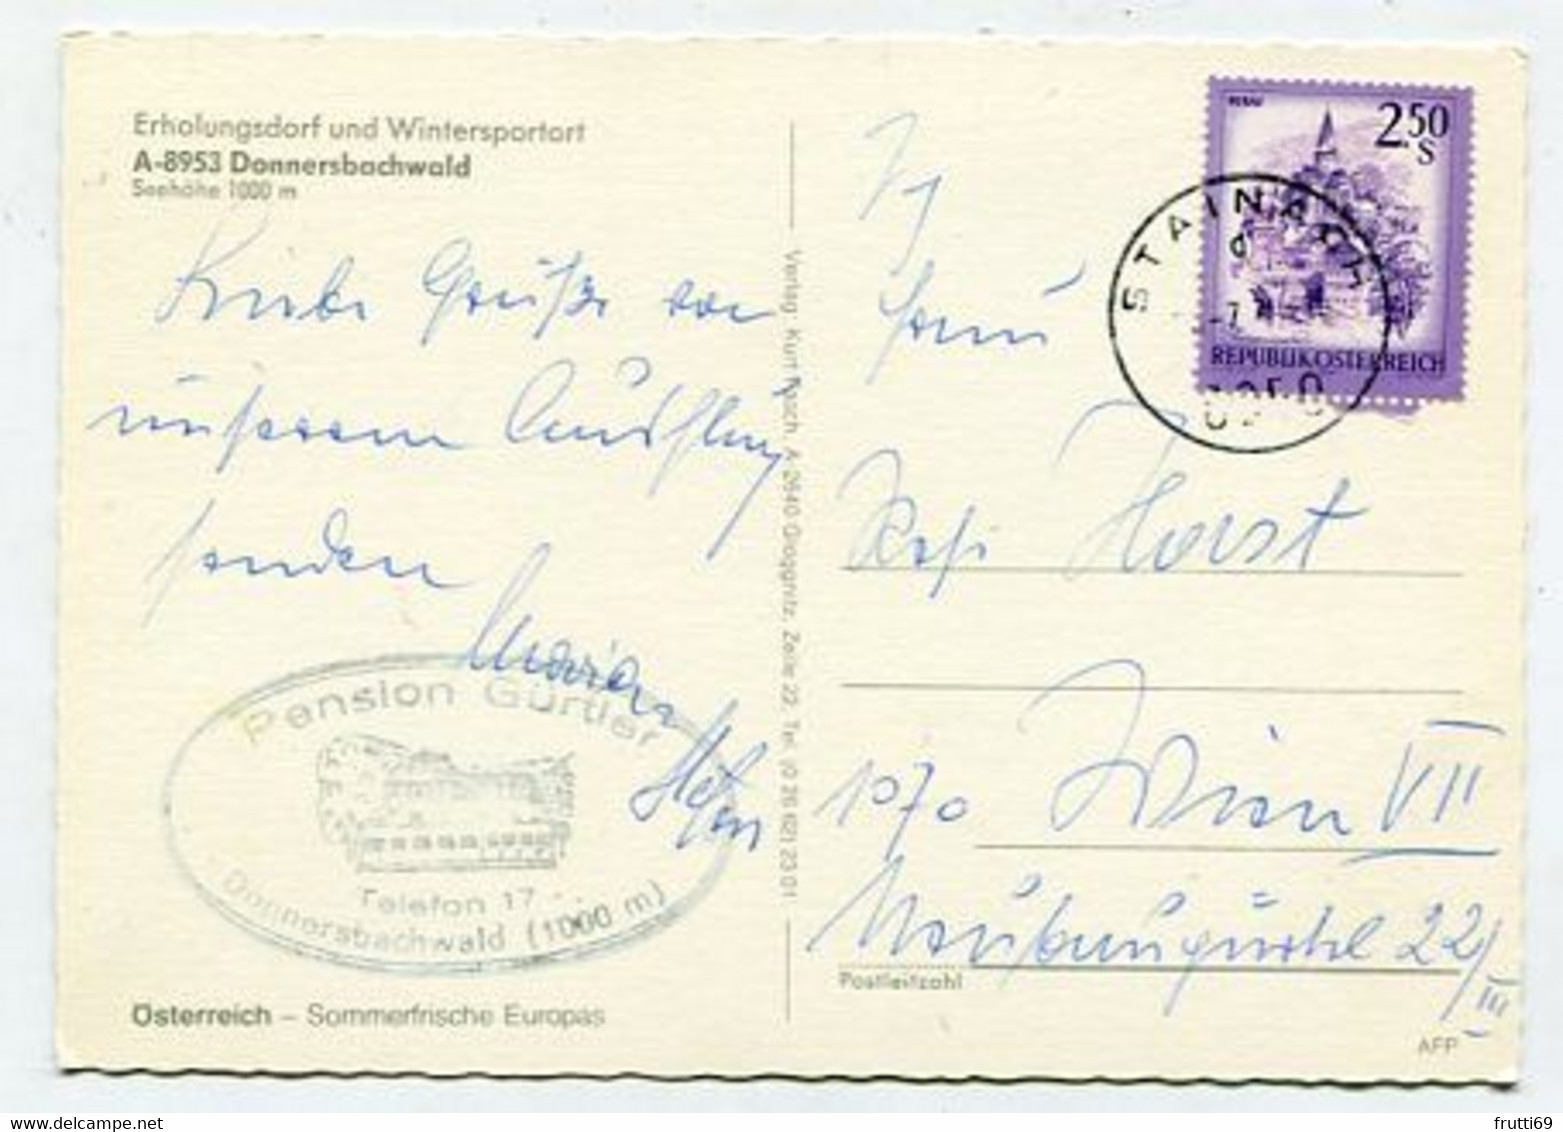 Erholungsdorf und Wintersportort
A-8953 Donnersbachwald
Seehöhe 1000 m
Liebe Grüße von
unserem Ausflug
senden
Marian
Stefan
Pension Gürtler
Telefon 17
Donnersbachwald (1000 m)
Österreich – Sommerfrische Europas
Verlag: Kurt Rasch, A-2640 Gloggnitz, Zeile 22, Tel. (0 26 62) 23 01
2.50
S
REPUBLIK ÖSTERREICH
STAINACH
Frau
Resi Horst
1070 Wien VII
Neubaugürtel 22/III
Postleitzahl
AFP
frutti69